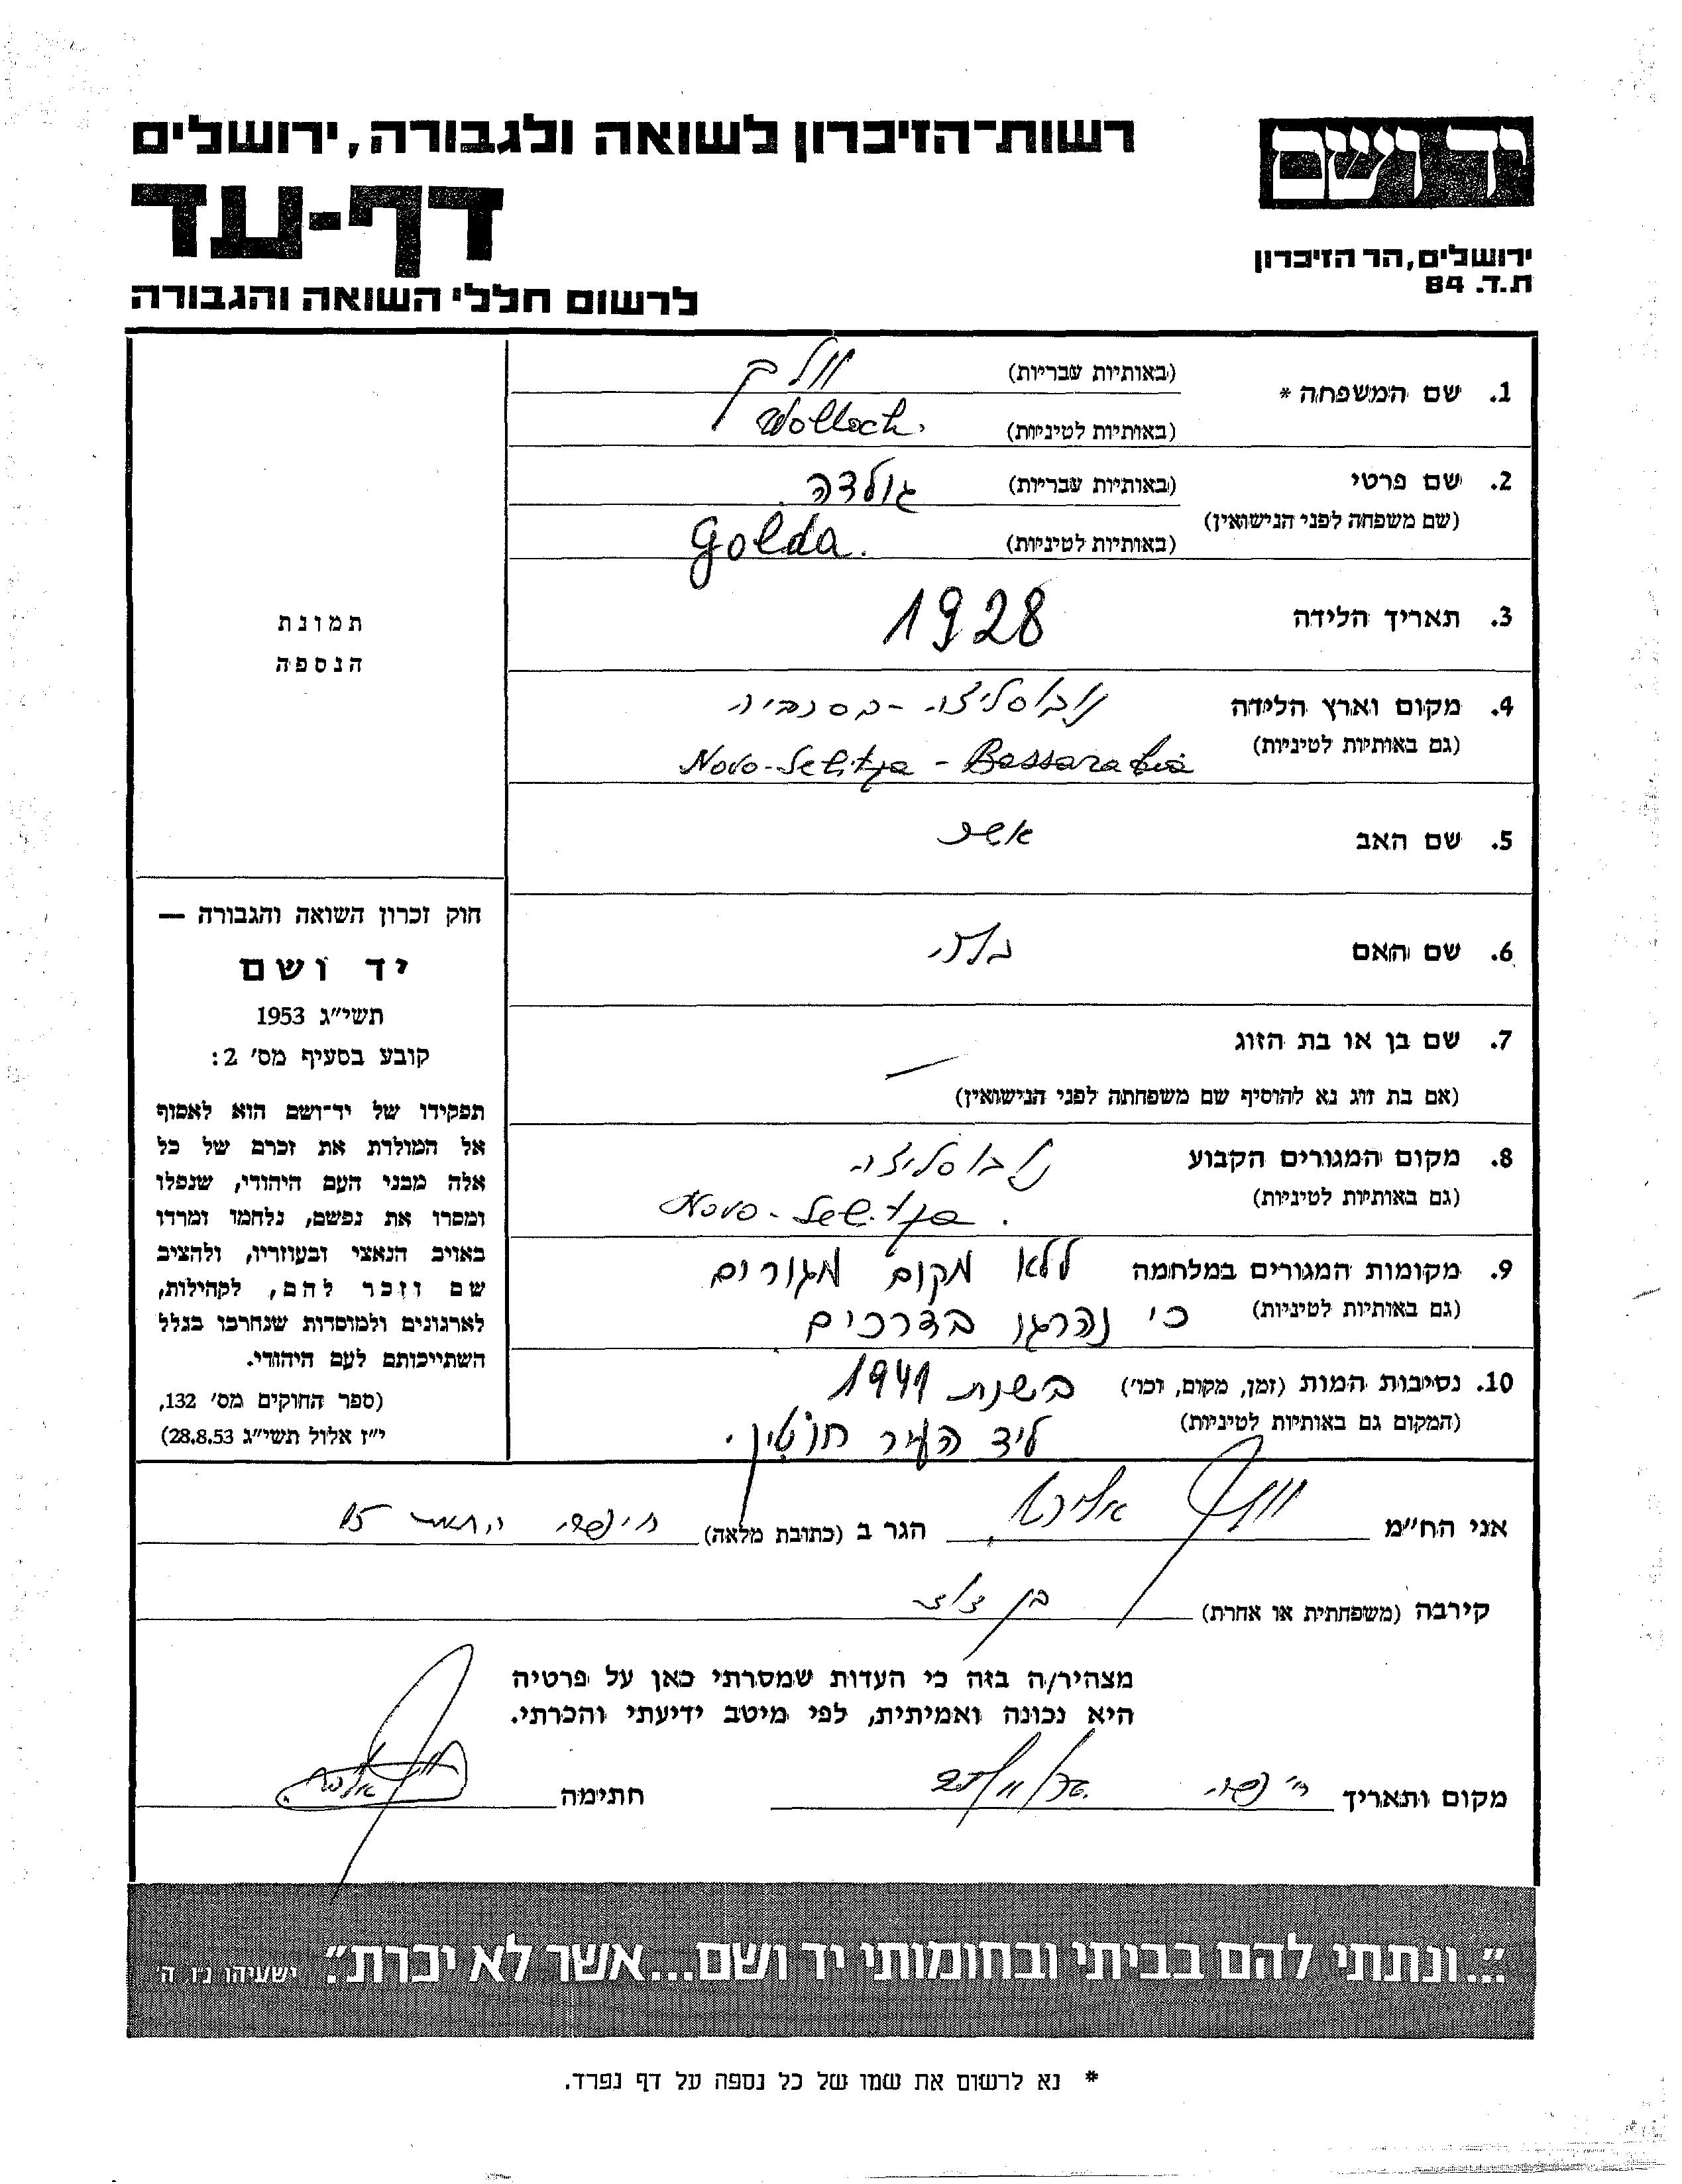 יד ושם
ירושלים, הר הזיכרון
ת.ד. 84
רשות־הזיכרון לשואה ולגבורה, ירושלים
דף-עד
לרשום חללי השואה והגבורה
1. שם המשפחה * (באותיות עבריות) וולך
(באותיות לטיניות) Wolloch.
2. שם פרטי (באותיות עבריות) גולדה
(שם משפחה לפני הנישואין)
(באותיות לטיניות) Golda.
3. תאריך הלידה 1928
4. מקום וארץ הלידה נובוסליצה - בסרביה
(גם באותיות לטיניות) Novo-Selitza - Bassarabia
5. שם האב אשר
6. שם האם
7. שם בן או בת הזוג —
(אם בת זוג נא להוסיף שם משפחתה לפני הנישואין)
8. מקום המגורים הקבוע נובוסליצה
(גם באותיות לטיניות) Novo-Selitza.
9. מקומות המגורים במלחמה ללא מקום מגורים
(גם באותיות לטיניות) כי נהרגו בדרכים
10. נסיבות המות (זמן, מקום, וכו') בשנת 1941
(המקום גם באותיות לטיניות) ליד העיר חוטין.
תמונת
הנספה
חוק זכרון השואה והגבורה —
יד ושם
תשי"ג 1953
קובע בסעיף מס' 2:
תפקידו של יד־ושם הוא לאסוף
אל המולדת את זכרם של כל
אלה מבני העם היהודי, שנפלו
ומסרו את נפשם, נלחמו ומרדו
באויב הנאצי ובעוזריו, ולהציב
שם וזכר להם, לקהילות,
לארגונים ולמוסדות שנחרבו בגלל
השתייכותם לעם היהודי.
(ספר החוקים מס' 132,
י"ז אלול תשי"ג 28.8.53)
אני הח"מ וולך הגר ב (כתובת מלאה) חיפה 15
קירבה (משפחתית או אחרת) בן דוד
מצהיר/ה בזה כי העדות שמסרתי כאן על פרטיה
היא נכונה ואמיתית, לפי מיטב ידיעתי והכרתי.
מקום ותאריך חיפה חתימה
"...ונתתי להם בביתי ובחומותי יד ושם...אשר לא יכרת". ישעיהו נ"ו, ה'
* נא לרשום את שמו של כל נספה על דף נפרד.